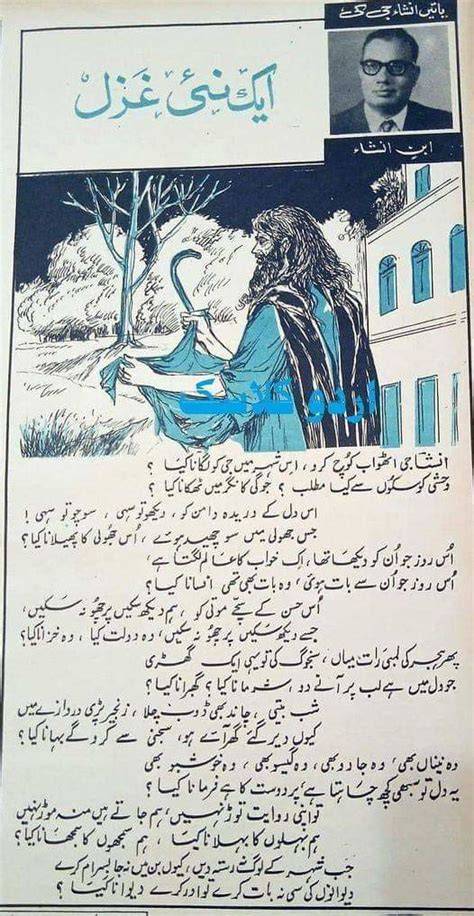 باتیں انشاء جی کی
ایک نئی غزل
ابن انشاء
اردو کلاسک
انشا جی اٹھو اب کوچ کرو ، اس شہر میں جی کو لگانا کیا ؟
وحشی کو سکوں سے کیا مطلب ؟ جوگی کا نگر میں ٹھکانا کیا ؟
اس دل کے دریدہ دامن کو ، دیکھو تو سہی ، سوچو تو سہی !
جس جھولی میں سو چھید ہوئے ، اُس جھولی کا پھیلانا کیا ؟
اُس روز جو اُن کو دیکھا تھا ، اک خواب کا عالم لگتا ہے ،
اُس روز جو اُن سے بات ہوئی ، وہ بات بھی تھی افسانا کیا ؟
اُس حُسن کے سچے موتی کو ، ہم دیکھ سکیں پر چھو نہ سکیں ،
جسے دیکھ سکیں پر چھو نہ سکیں ، وہ دولت کیا ، وہ خزانا کیا ؟
پھر ہجر کی لمبی رات میاں ، سنجوگ کی تو یہی ایک گھڑی
جو دل میں ہے لب پر آنے دو ، شرمانا کیا ؟ گھبرانا کیا ؟
شب بیتی ، چاند بھی ڈوب چلا ، زنجیر پڑی دروازے میں
کیوں دیر گئے گھر آئے ہو ، سجنی سے کرو گے بہانا کیا ؟
وہ نیناں بھی ، وہ جادو بھی ، وہ گیسو بھی ، وہ خوشبو بھی
یہ دل تو سبھی کچھ چاہتا ہے ، پر دوست کا ہے فرمانا کیا ؟
تو اپنی روایت توڑ نہیں ، ہم جاتے ہیں منہ موڑ نہیں
ہم بہلوں کا بہلانا کیا ، ہم سمجھوں کا سمجھانا کیا ؟
جب شہر کے لوگ نہ رستہ دیں ، کیوں بن میں نہ جا بسرام کرے
دیوانوں کی سی نہ بات کرے تو اور کرے دیوانا کیا ؟